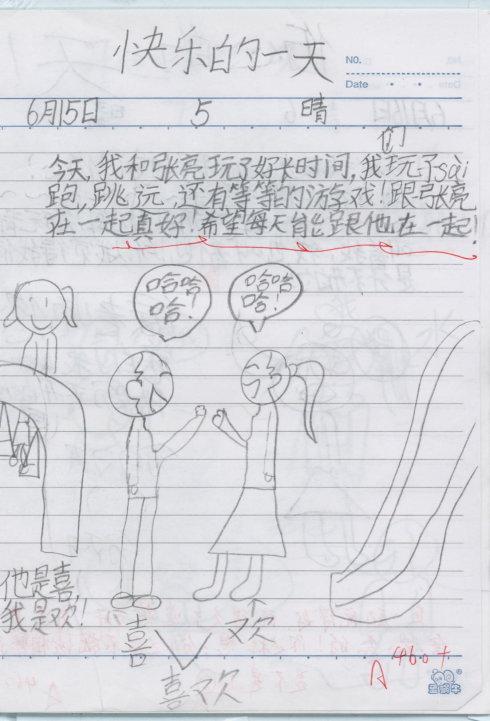 快乐的一天
NO.
Date
6月15日 5 晴
们
今天,我和张亮玩了好长时间,我玩了sài
跑,跳远,还有等等的游戏!跟张亮
在一起真好!希望每天能跟他在一起!
哈哈哈! 哈哈哈!
他是喜,
我是欢!
喜 欢
喜欢
A 460+